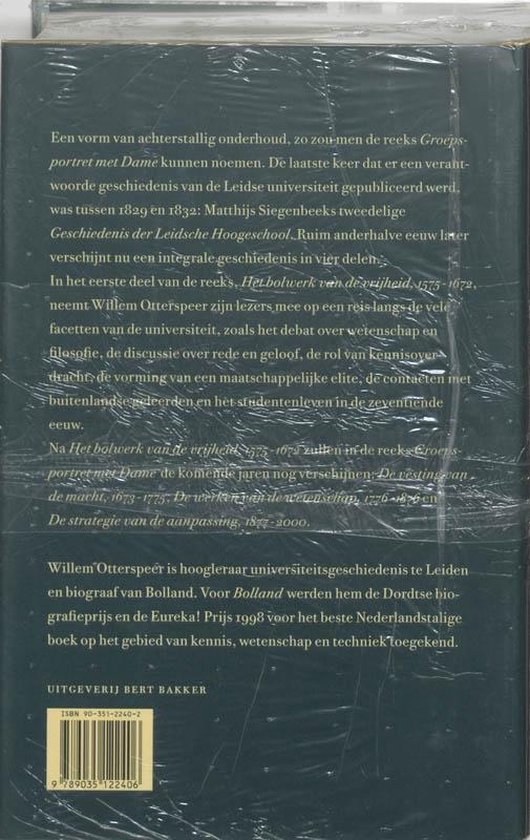 Een vorm van achterstallig onderhoud, zo zou men de reeks Groeps-
portret met Dame kunnen noemen. De laatste keer dat er een verant-
woorde geschiedenis van de Leidse universiteit gepubliceerd werd,
was tussen 1829 en 1832: Matthijs Siegenbeeks tweedelige
Geschiedenis der Leidsche Hoogeschool. Ruim anderhalve eeuw later
verschijnt nu een integrale geschiedenis in vier delen.
In het eerste deel van de reeks, Het bolwerk van de vrijheid, 1575-1672,
neemt Willem Otterspeer zijn lezers mee op een reis langs de vele
facetten van de universiteit, zoals het debat over wetenschap en
filosofie, de discussie over rede en geloof, de rol van kennisover-
dracht, de vorming van een maatschappelijke elite, de contacten met
buitenlandse geleerden en het studentenleven in de zeventiende
eeuw.
Na Het bolwerk van de vrijheid, 1575-1672 zullen in de reeks Groeps-
portret met Dame de komende jaren nog verschijnen: De vesting van
de macht, 1673-1775, De werken van de wetenschap, 1776-1876 en
De strategie van de aanpassing, 1877-2000.
Willem Otterspeer is hoogleraar universiteitsgeschiedenis te Leiden
en biograaf van Bolland. Voor Bolland werden hem de Dordtse bio-
grafieprijs en de Eureka! Prijs 1998 voor het beste Nederlandstalige
boek op het gebied van kennis, wetenschap en techniek toegekend.
UITGEVERIJ BERT BAKKER
ISBN 90-351-2240-2
9 789035 122406